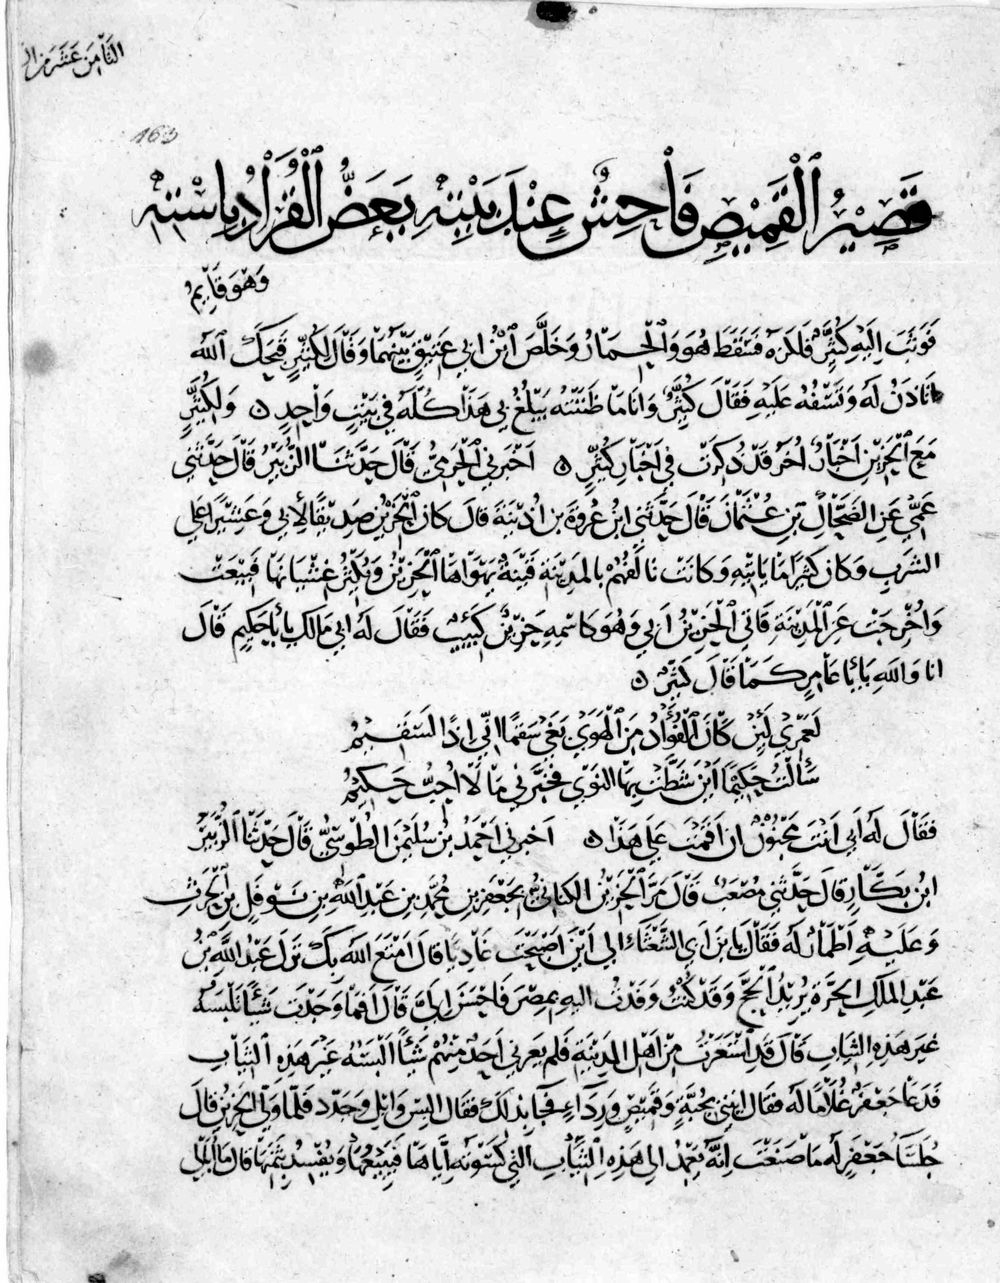 الثامن عشر من ال
163
قَصِيْرُ ٱلْقَمِيْصِ فَاحِشٌ عِنْدَ بَيْتِهِ يَعَضُّ الْقُرَادُ بِاسْتِهِ
وَهْوَ قَايِمُ
فَوَثَبَ اِلَيْهِ كُثَيِّرٌ فَلَكَزَهُ فَسَقَطَ هُوَ وَالْحِمَارُ وَخَلَّصَ ابْنُ ابي عَتِيْقٍ بَيْنَهُمَا وَقَالَ لِكُثَيِّرٍ قَبَحَكَ ٱللّٰه
اتَاذَنُ لَهُ وَتَسْفُهُ عَلَيْهِ فَقَالَ كُثَيِّرٌ وَانَا مَا ظَنَنْتُهُ يَبْلُغُ بِي هَذَا كُلَّهُ فِي بَيْتٍ وَاحِدٍ ٥ وَلِكُثَيِّرٍ
مَعَ الْحَزِيْنِ اَخْبَارٌ اُخَرُ قَدْ ذُكِرَتْ فِي اَخْبَارِ كُثَيِّرٍ ٥ اَخْبَرَنِي الْحَرَمِيُّ قَالَ حَدَّثَنَا الزُّبَيْرُ قَالَ حَدَّثَنِي
عَمِّي عَنِ الضَحَّاكِ بْنِ عُثْمَانَ قَالَ حَدَّثَنِي ابْنُ عُرْوَةَ بن اُذَيْنَةَ قالَ كانَ الْحَزِيْنُ صَدِيْقًا لأبي وَعَشِيْرًا على
الشرَبِ وَكانَ كَثِيْرًا مَا يَاتِيْهِ وَكَانَتْ تَالَفُهُمْ بِالمَدِيْنَةِ قَيْنَةٌ يَهْوَاهَا الْحَزِيْنُ وَيُكْثِرُ غِشْيَانَهَا فَبِيْعَتْ
وَاُخْرِجَتْ عَنِ الْمَدِيْنَةِ فَاتَى الْحَزِيْنُ اَبِي وَهُوَ كَاسْمِهِ حَزِيْنٌ كَئِيْبٌ فَقَالَ لَهُ ابي مَالَكَ يا اَبَا حَكِيْمٍ قَالَ
انا وَاللهِ يَا اَبَا عَامِرٍ كَمَا قَالَ كُثَيِّرٌ ٥
لَعَمْرِي لَئِنْ كَانَ الْفُؤَادُ مِنَ الْهَوَى بَغَى سَقَمًا اِنِّي اِذًا لَسَقِيْمُ
سَأَلْتُ حَكِيْمًا اَيْنَ شَطَّتْ بِهَا النَوَى فَخَبَّرَنِي مَا لَا اُحِبُّ حَكِيْمُ
فَقَالَ لَهُ اَبِي اَنْتَ مَجْنُوْنٌ ان اَقَمْتَ عَلَى هَذَا ٥ اَخبرني اَحْمَدُ بْنُ سُلَيْمنَ الطُوْسِيُّ قَالَ حَدَّثَنَا الزُّبَيْرُ
ابْنُ بَكَّارٍ قالَ حَدَّثَنِي مُصْعَبٌ قَالَ مَرَّ الْحَزِيْنُ الكِنَانِيُّ بِجَعْفَرِ بنِ مُحَمَّدِ بن عَبْدِ اللهِ بنِ نَوْفَلِ بنِ الْحَرِثِ
وَعَلَيْهِ اَطْمَارٌ لَهُ فَقَالَ يا بْنَ اَبِي الشَّعْثَاءِ الى اَيْنَ اَصْبَحْتَ غَادِيًا قالَ اَمْتَعَ اللهُ بِكَ نَزَلَ عَبْدُ اللهِ بْنُ
عَبْدِ المَلِكِ الحَرَّةَ يُرِيْدُ الْحَجَّ وَقَدْ كُنْتُ وَفَدْتُ اليهِ بِمِصْرَ فَاَحْسَنَ اِلَيَّ قَالَ اَفَمَا وَجَدْتَ شَيْئًا تَلْبَسُهُ
غَيرَ هَذِهِ الثِيَابِ قَالَ قَدِ اسْتَعَرْتُ مِنْ اَهْلِ المَدِيْنَةِ فَلَم يُعِرْني اَحَدٌ مِنْهُمْ شَيْئًا اَلْبَسُهُ غَيْرَ هَذِهِ الثِيَابِ
فَدَعَا جَعْفَرٌ غُلَامًا لَهُ فَقَالَ ايْتِنِي بِجُبَّةٍ وَقَمِيْصٍ وَرِدَاءٍ فَجَاءَ بِذَلِكَ فَقَالَ البِسْ وَابْلِ وَجَدِّد فَلَمَّا وَلَّى الحَزِيْنُ قالَ
جُلَسَاءُ جَعْفَرٍ لَهُ مَا صَنَعْتَ اِنَّهُ يَعْمِدُ الى هَذِهِ الثِيَابِ التي كَسَوْتَهُ اِيَّاهَا فَيَبِيْعُهَا وَيُفْسِدُ ثَمَنَهَا قالَ مَا اُبَالي